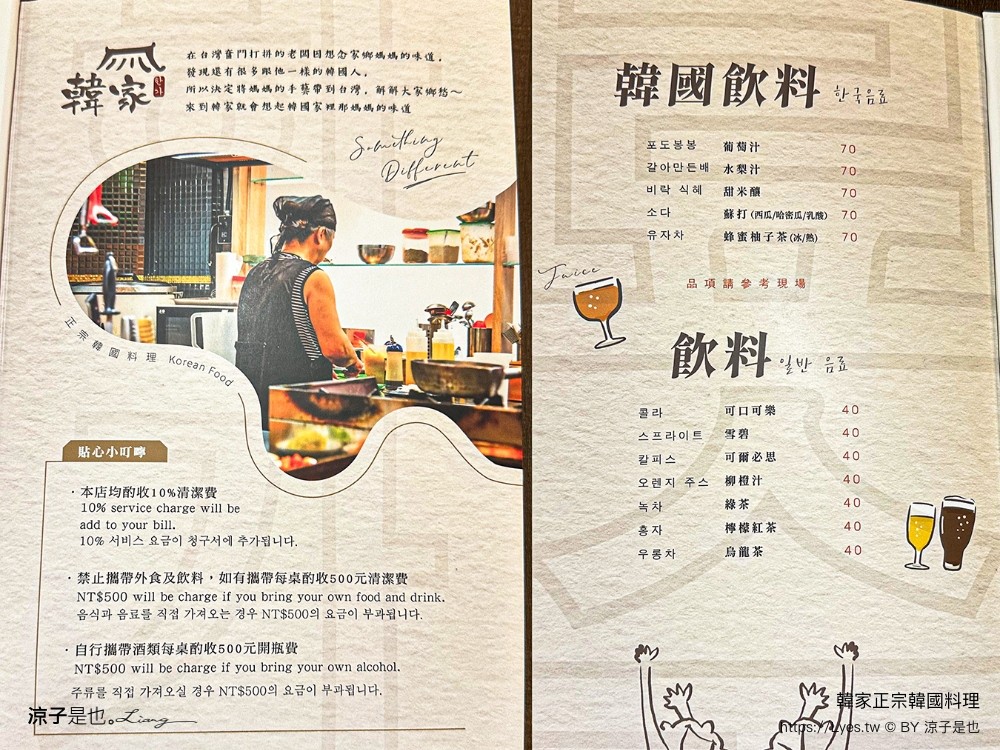 韓家
在台灣奮鬥打拼的老闆因想念家鄉媽媽的味道，
發現還有很多跟他一樣的韓國人，
所以決定將媽媽的手藝帶到台灣，解解大家鄉愁～
來到韓家就會想起韓國家裡那媽媽的味道
Something
Different
正宗韓國料理 Korean Food
貼心小叮嚀
·本店均酌收10%清潔費
10% service charge will be
add to your bill.
10% 서비스 요금이 청구서에 추가됩니다.
·禁止攜帶外食及飲料，如有攜帶每桌酌收500元清潔費
NT$500 will be charge if you bring your own food and drink.
음식과 음료를 직접 가져오는 경우 NT$500의 요금이 부과됩니다.
·自行攜帶酒類每桌酌收500元開瓶費
NT$500 will be charge if you bring your own alcohol.
주류를 직접 가져오실 경우 NT$500의 요금이 부과됩니다.
涼子是也。Liang
韓國飲料 한국음료
포도봉봉 葡萄汁 70
갈아만든배 水梨汁 70
비락 식혜 甜米釀 70
소다 蘇打(西瓜/哈密瓜/乳酸) 70
유자차 蜂蜜柚子茶(冰/熱) 70
品項請參考現場
Juice
飲料 일반 음료
콜라 可口可樂 40
스프라이트 雪碧 40
칼피스 可爾必思 40
오렌지 주스 柳橙汁 40
녹차 綠茶 40
홍차 檸檬紅茶 40
우롱차 烏龍茶 40
韓家正宗韓國料理
https://Lyes.tw © BY 涼子是也